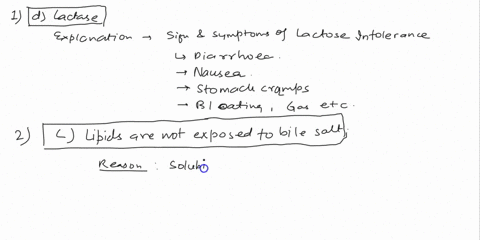 1) d) Lactase
Explanation → Sign & symptoms of Lactose Intolerance
↳ Diarrhoea.
→ Nausea.
→ Stomach cramps
→ Bloating, Gas etc.
2) (c) Lipids are not exposed to bile salt;
Reason : Solubi